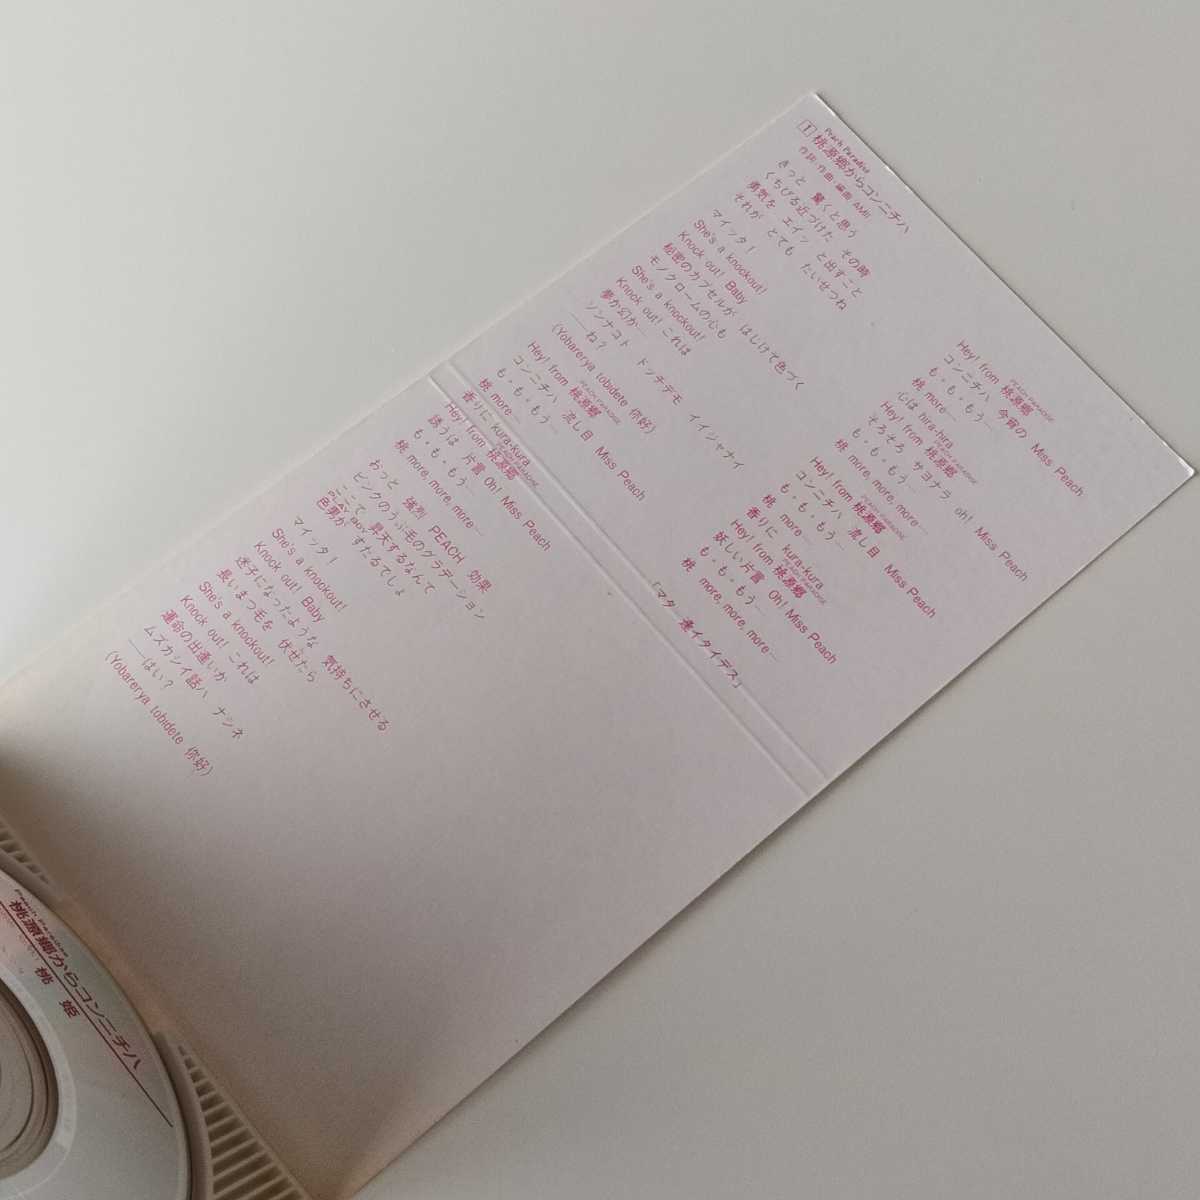 1 桃源郷からコンニチハ
Peach Paradise
作詞・作曲・編曲 AMII
きっと 驚くと思う
くちびる近づけた その時
勇気を エイッ と出すこと
それが とても たいせつね
マイッタ!
She's a knockout!
Knock out! Baby
秘密のカプセルが はじけて色づく
モノクロームの心も
She's a knockout!
Knock out! これは
夢か幻か—
ソンナコト ドッチデモ イイジャナイ
——ね?
(Yobarerya tobidete 你好)
Hey! from 桃源郷
PEACH PARADISE
コンニチハ 流し目 Miss Peach
も・も・もう…
桃 more…
香りに kura-kura
Hey! from 桃源郷
PEACH PARADISE
誘うは 片言 Oh! Miss Peach
も・も・もう…
桃 more, more, more…
おっと 強烈 PEACH 効果
ピンクのうぶ毛のグラデーション
ここで 昇天するなんて
色男が すたるでしょ
PLAY BOY
マイッタ!
She's a knockout!
Knock out! Baby
迷子になったような 気持ちにさせる
長いまつ毛を 伏せたら
She's a knockout!
Knock out! これは
運命の出逢いか
ムズカシイ話ハ ナシネ
——はい?
(Yobarerya tobidete 你好)
Hey! from 桃源郷
PEACH PARADISE
コンニチハ 今宵の Miss Peach
も・も・もう…
桃 more…
心は hira-hira
Hey! from 桃源郷
PEACH PARADISE
そろそろ サヨナラ oh! Miss Peach
も・も・もう…
桃 more, more, more…
Hey! from 桃源郷
PEACH PARADISE
コンニチハ 流し目 Miss Peach
も・も・もう…
桃 more…
香りに kura-kura
Hey! from 桃源郷
PEACH PARADISE
妖しい片言 Oh! Miss Peach
も・も・もう…
桃 more, more, more…
「マタ 逢イタイデス」
Peach Paradise
桃源郷からコンニチハ
桃姫